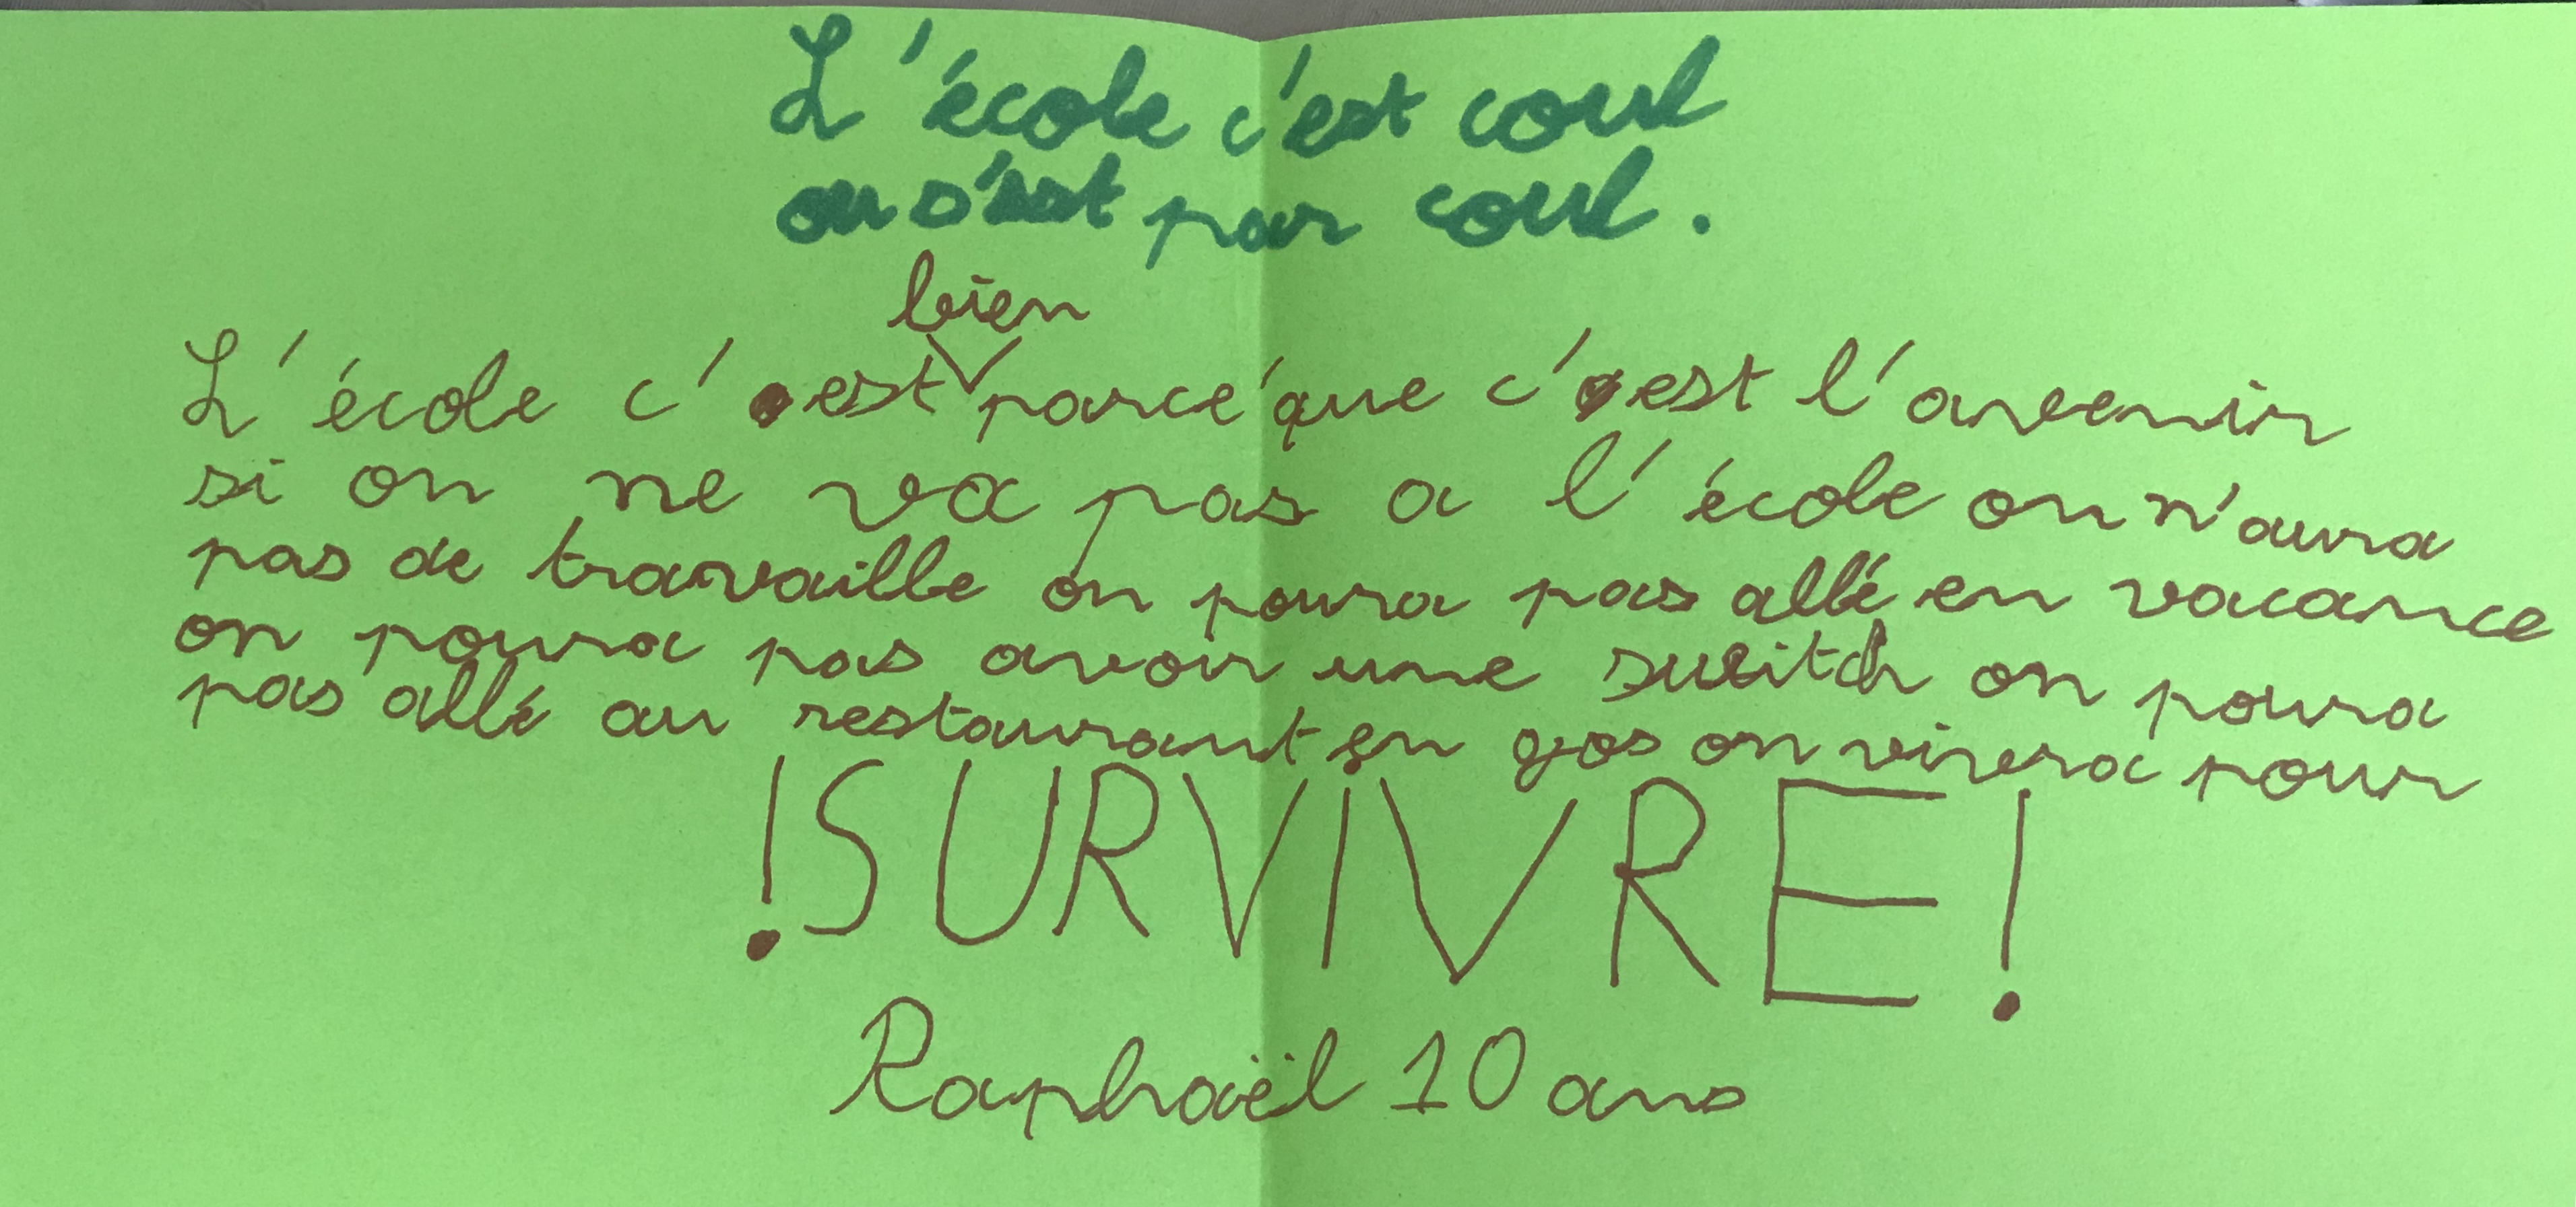 L'école c'est coul
ou s'est pas coul.
bien
L'école c'est parce'que c'est l'avenir
si on ne va pas a l'école on n'aura
pas de travaille on poura pas allé en vacance
on poura pas avoir une switch on poura
pas allé au restaurant en gos on vivera pour
!SURVIVRE!
Raphaël 10 ans